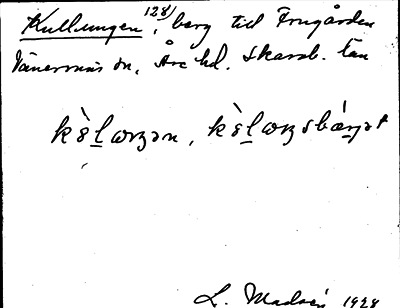 Kullungen 128/, berg till Frugården
Vänersnäs sn, Åse hd. Skarab. län
kòlaŋən, kòlaŋsbárjət
L. Madsén 1928